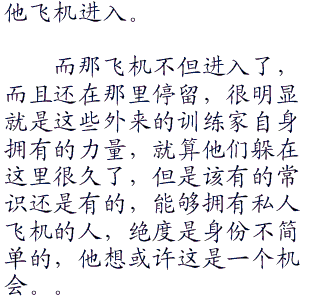 他飞机进入。
而那飞机不但进入了，
而且还在那里停留，很明显
就是这些外来的训练家自身
拥有的力量，就算他们躲在
这里很久了，但是该有的常
识还是有的，能够拥有私人
飞机的人，绝度是身份不简
单的，他想或许这是一个机
会。。